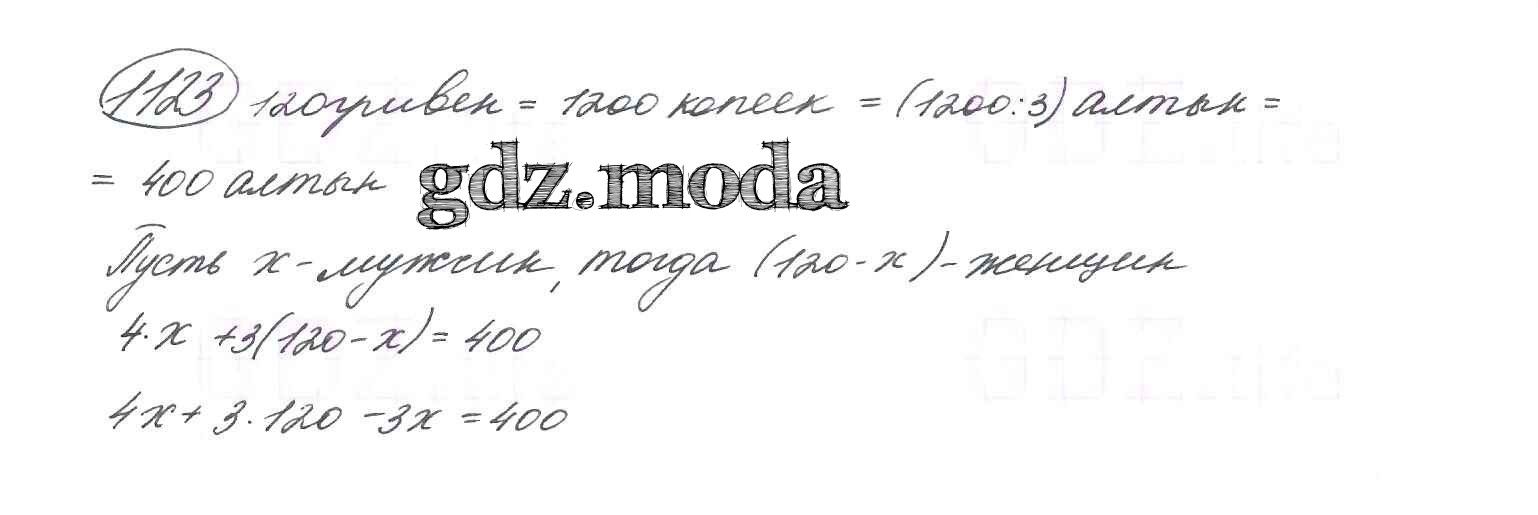 1123 120 гривен = 1200 копеек = (1200:3) алтын =
= 400 алтын gdz.moda
Пусть х - мужчин, тогда (120-х) - женщин
4·х +3(120-х)= 400
4х+ 3·120 -3х =400